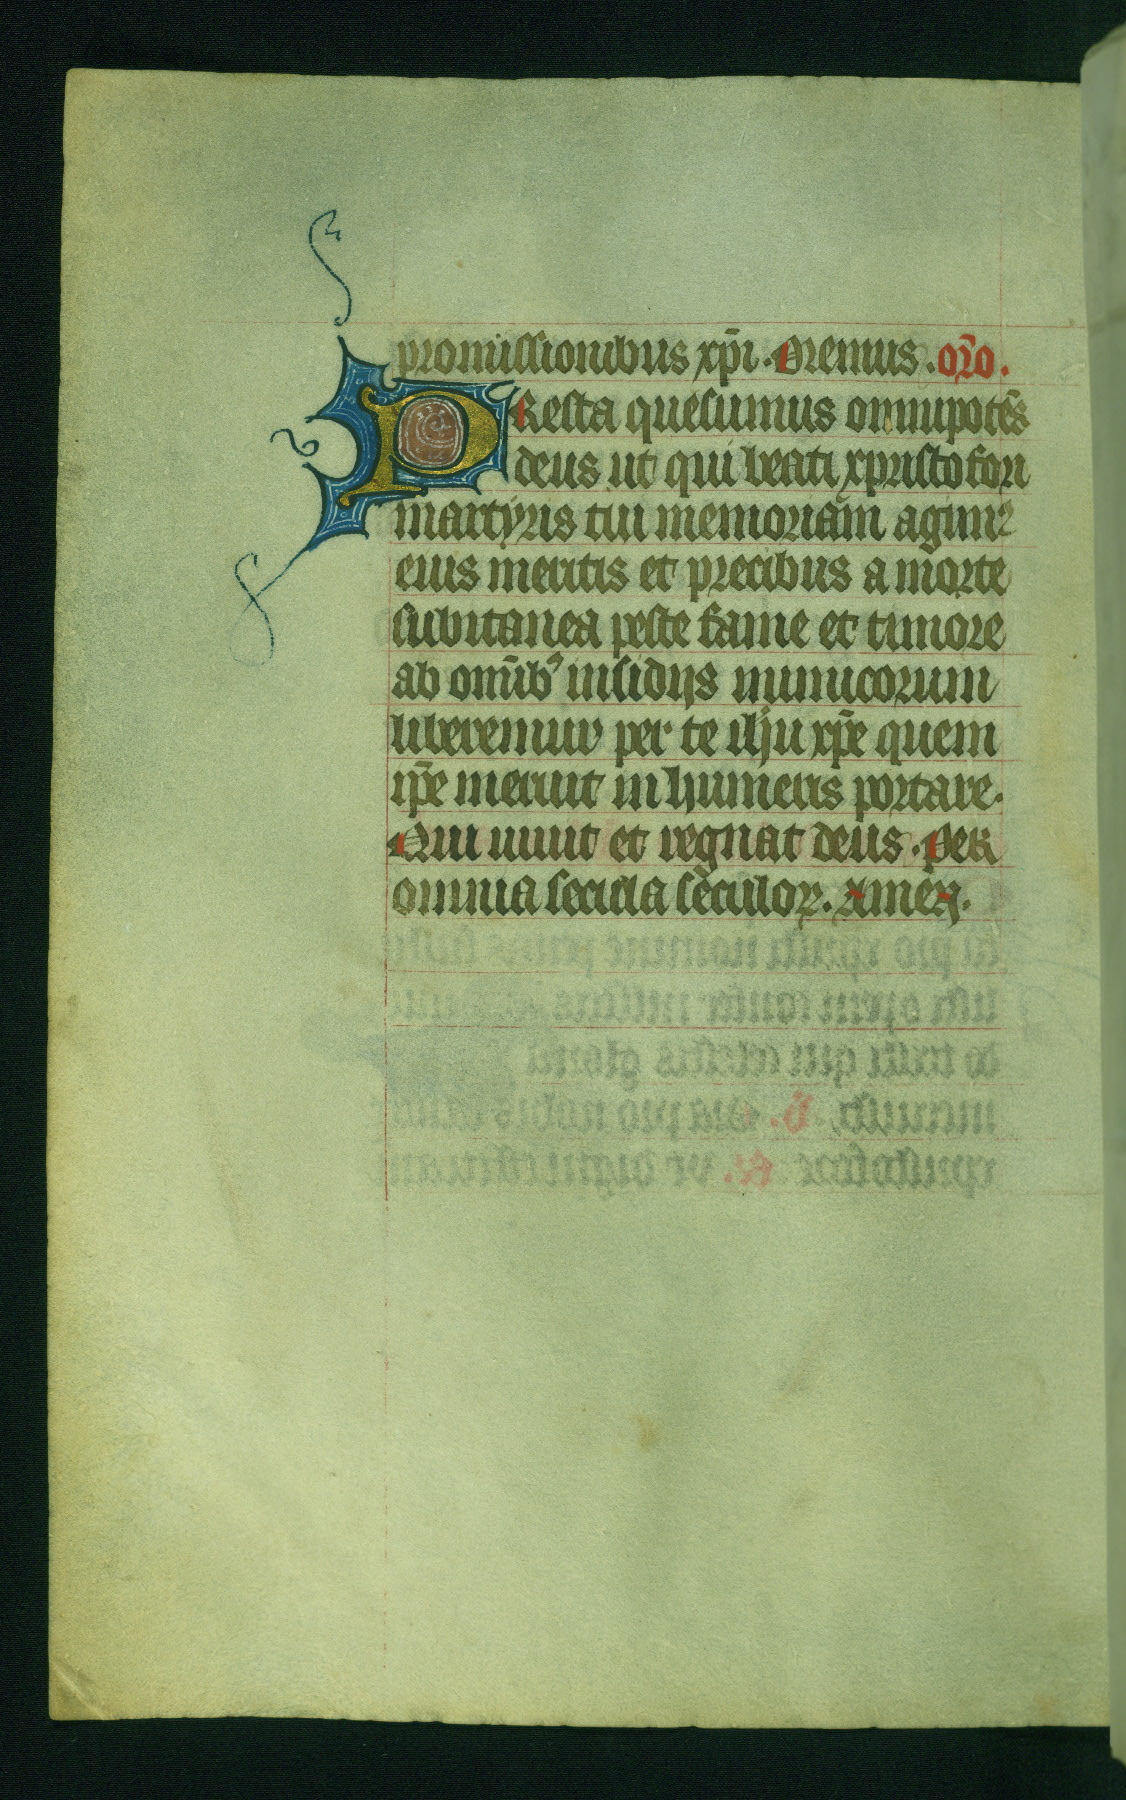 promissionibus xp̄i. Oremus. or̄o.
PResta quesumus om̄ipotēs
deus ut qui beati xpristofori
martyris tui memoriam agimꝰ
eius meritis et precibus a morte
subitanea peste fame et timore
ab om̄ibꝰ insidijs inimicorum
liberemur per te ihu xp̄e quem
ip̄e meruit in humeris portare.
Qui uiuit et regnat deus. Per
omnia secula sēculoꝝ. Amen.